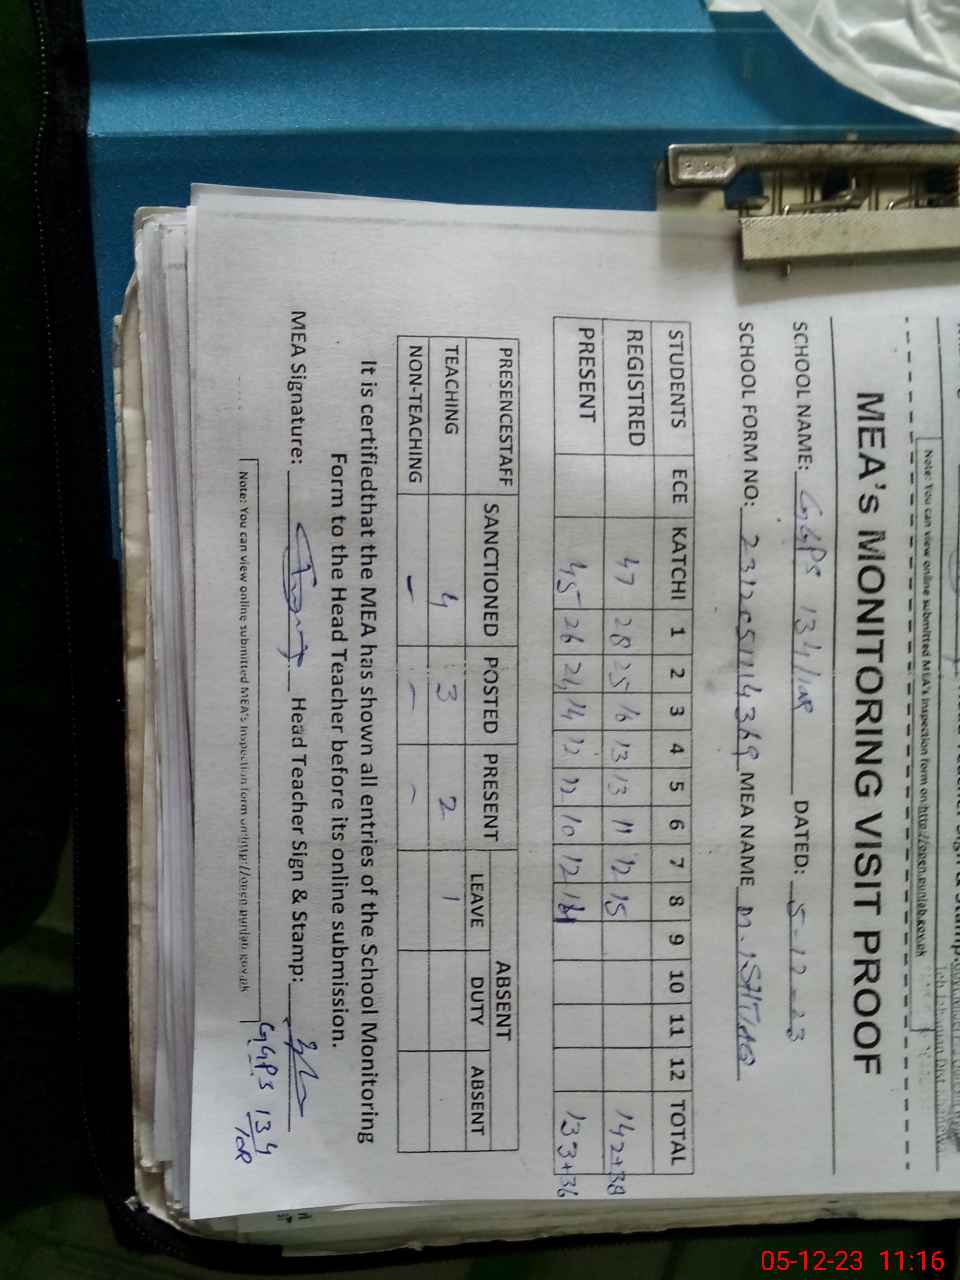 Note: You can view online submitted MEA's inspection form on http://open.punjab.gov.pk
MEA's MONITORING VISIT PROOF
SCHOOL NAME: GGPS 134/10R DATED: 5-12-23
SCHOOL FORM NO: MEA NAME M. ISHTIAQ
STUDENTS ECE KATCHI 1 2 3 4 5 6 7 8 9 10 11 12 TOTAL
REGISTRED 47 28 25 16 13 13 11 12 15 142+38
PRESENT 45 26 24 14 12 12 10 12 133+36
PRESENCESTAFF SANCTIONED POSTED PRESENT ABSENT
LEAVE DUTY ABSENT
TEACHING 4 3 2 1
NON-TEACHING - - -
It is certifiedthat the MEA has shown all entries of the School Monitoring
Form to the Head Teacher before its online submission.
MEA Signature: Head Teacher Sign & Stamp:
GGPS 134/10R
Note: You can view online submitted MEA's inspection form on http://open.punjab.gov.pk
05-12-23 11:16